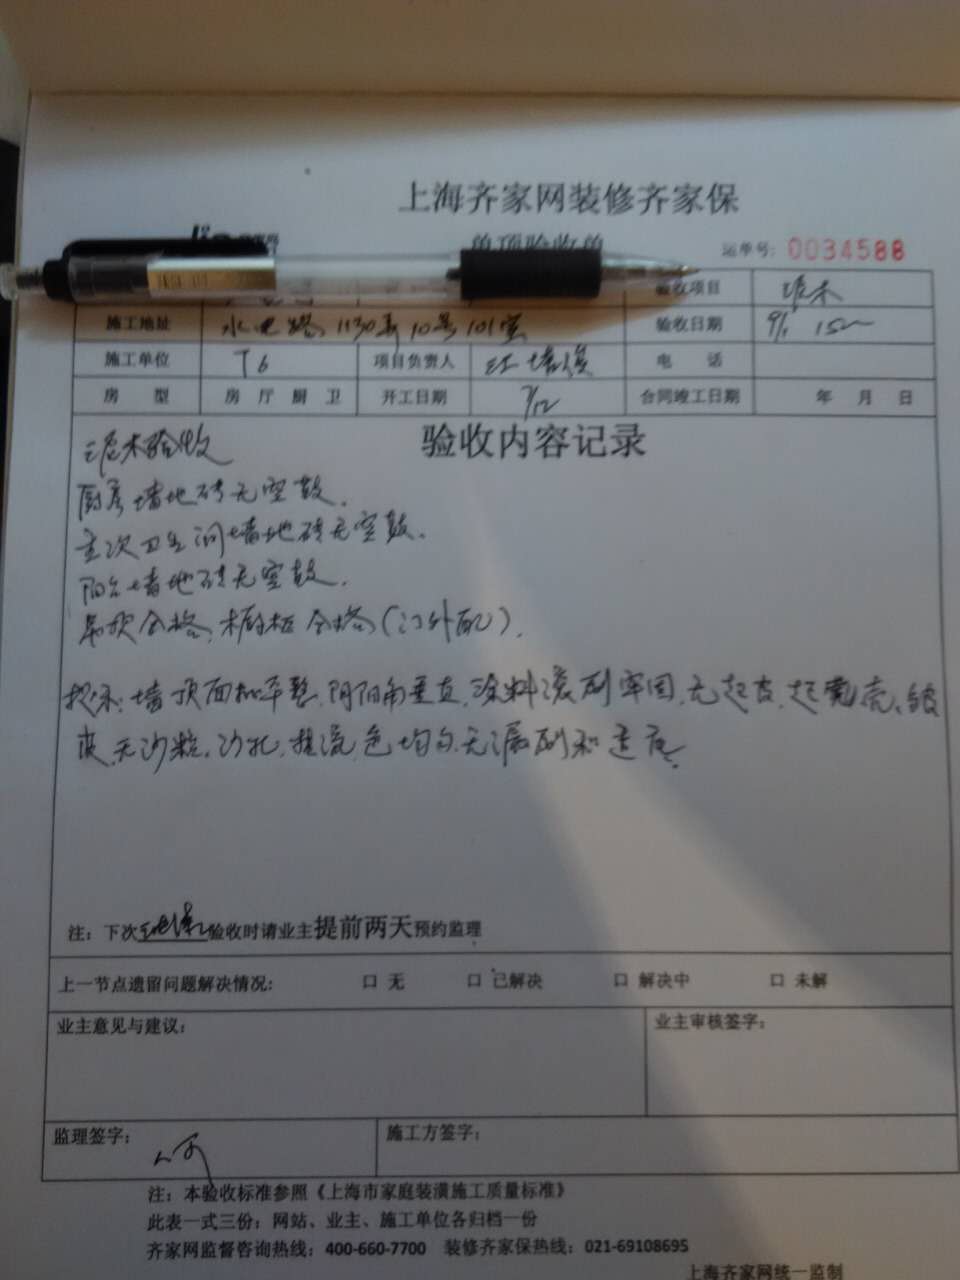 上海齐家网装修齐家保
单项验收单
运单号: 0034588
验收项目 泥木
施工地址 水电路1130弄10号101室 验收日期 9/1
施工单位 T6 项目负责人 电 话
房 型 房 厅 厨 卫 开工日期 7/12 合同竣工日期 年 月 日
验收内容记录
泥木验收
厨房墙地砖无空鼓.
主次卫生间墙地砖无空鼓.
阳台墙地砖无空鼓.
吊顶合格,木橱柜合格(门外配).
墙顶面批平整,阴阳角垂直,涂料滚刷牢固,无起皮,起壳、
皮,无沙粒,沙孔,流,色均匀,无漏刷和透底.
注:下次 验收时请业主提前两天预约监理
上一节点遗留问题解决情况: 口 无 口 已解决 口 解决中 口 未解
业主意见与建议: 业主审核签字:
监理签字: 施工方签字:
注:本验收标准参照《上海市家庭装潢施工质量标准》
此表一式三份:网站、业主、施工单位各归档一份
齐家网监督咨询热线:400-660-7700 装修齐家保热线:021-69108695
上海齐家网统一监制